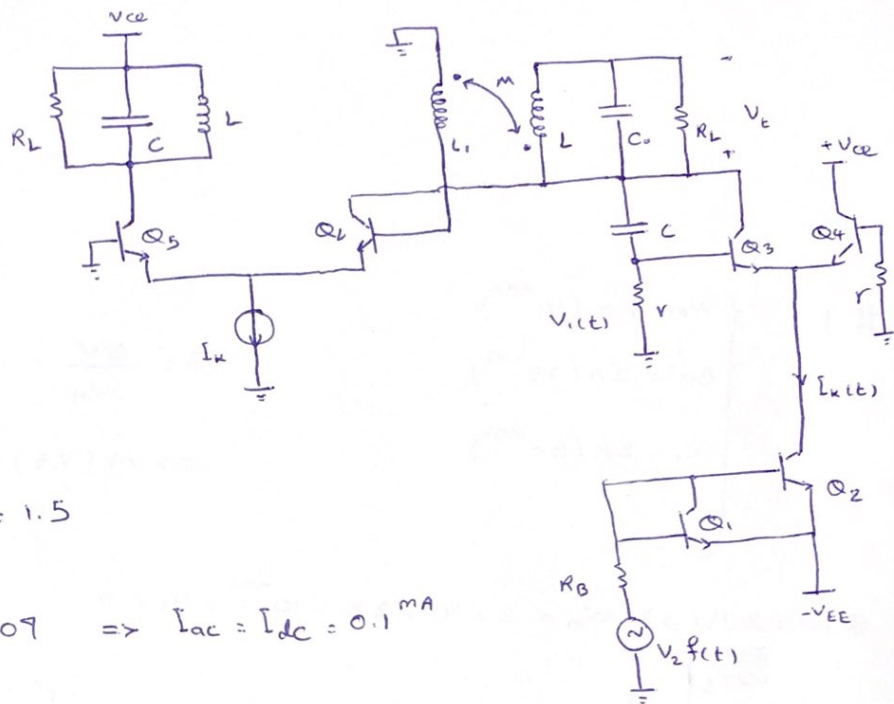 Vcc
RL
C
L
Q5
IK
L1
M
L
C0
RL
-
Vt
+
Q6
C
Q3
+Vcc
Q4
r
V1(t)
r
IK(t)
Q2
Q1
RB
-VEE
V2 f(t)
= 1.5
09 => Iac = Idc = 0.1 mA